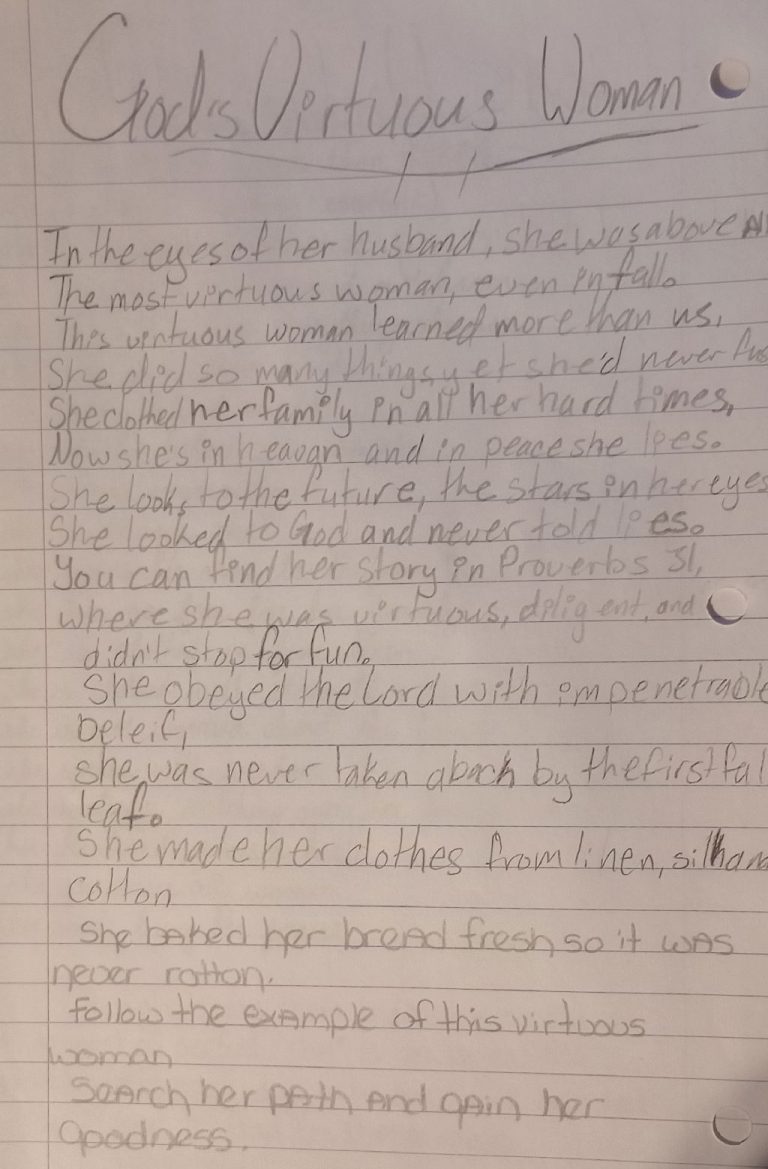 God's Virtuous Woman
In the eyes of her husband, she was above All
The most virtuous woman, even in fall.
This virtuous woman learned more than us,
She did so many things yet she'd never fus
She clothed her family in all her hard times,
Now she's in heavan and in peace she lies.
She looks to the future, the stars in her eyes
She looked to God and never told lies.
You can find her story in Proverbs 31,
where she was virtuous, diligent, and
didn't stop for fun.
She obeyed the Lord with impenetrable
beleif,
she was never taken aback by the first fal
leaf.
She made her clothes from linen, silk an
cotton
She baked her bread fresh so it was
never rotton.
Follow the example of this virtuous
woman
Search her path and gain her
goodness.